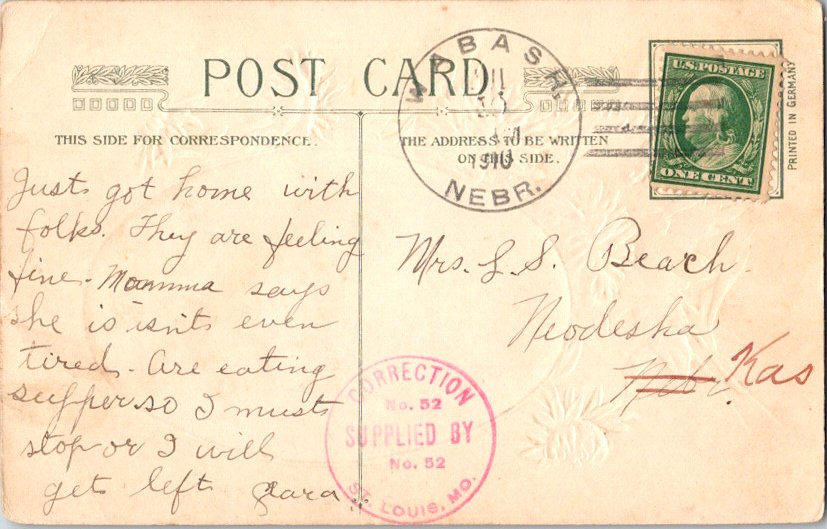 POST CARD
THIS SIDE FOR CORRESPONDENCE.
THE ADDRESS TO BE WRITTEN
ON THIS SIDE.
WABASH
1910
NEBR.
U.S. POSTAGE
ONE CENT
PRINTED IN GERMANY
Just got home with
folks. They are feeling
fine. Mamma says
she is isnt even
tired. Are eating
supper so I must
stop or I will
get left Clara
Mrs. L. S. Beach.
Neodesha
Nebr. Kas
CORRECTION
No. 52
SUPPLIED BY
No. 52
ST. LOUIS, MO.